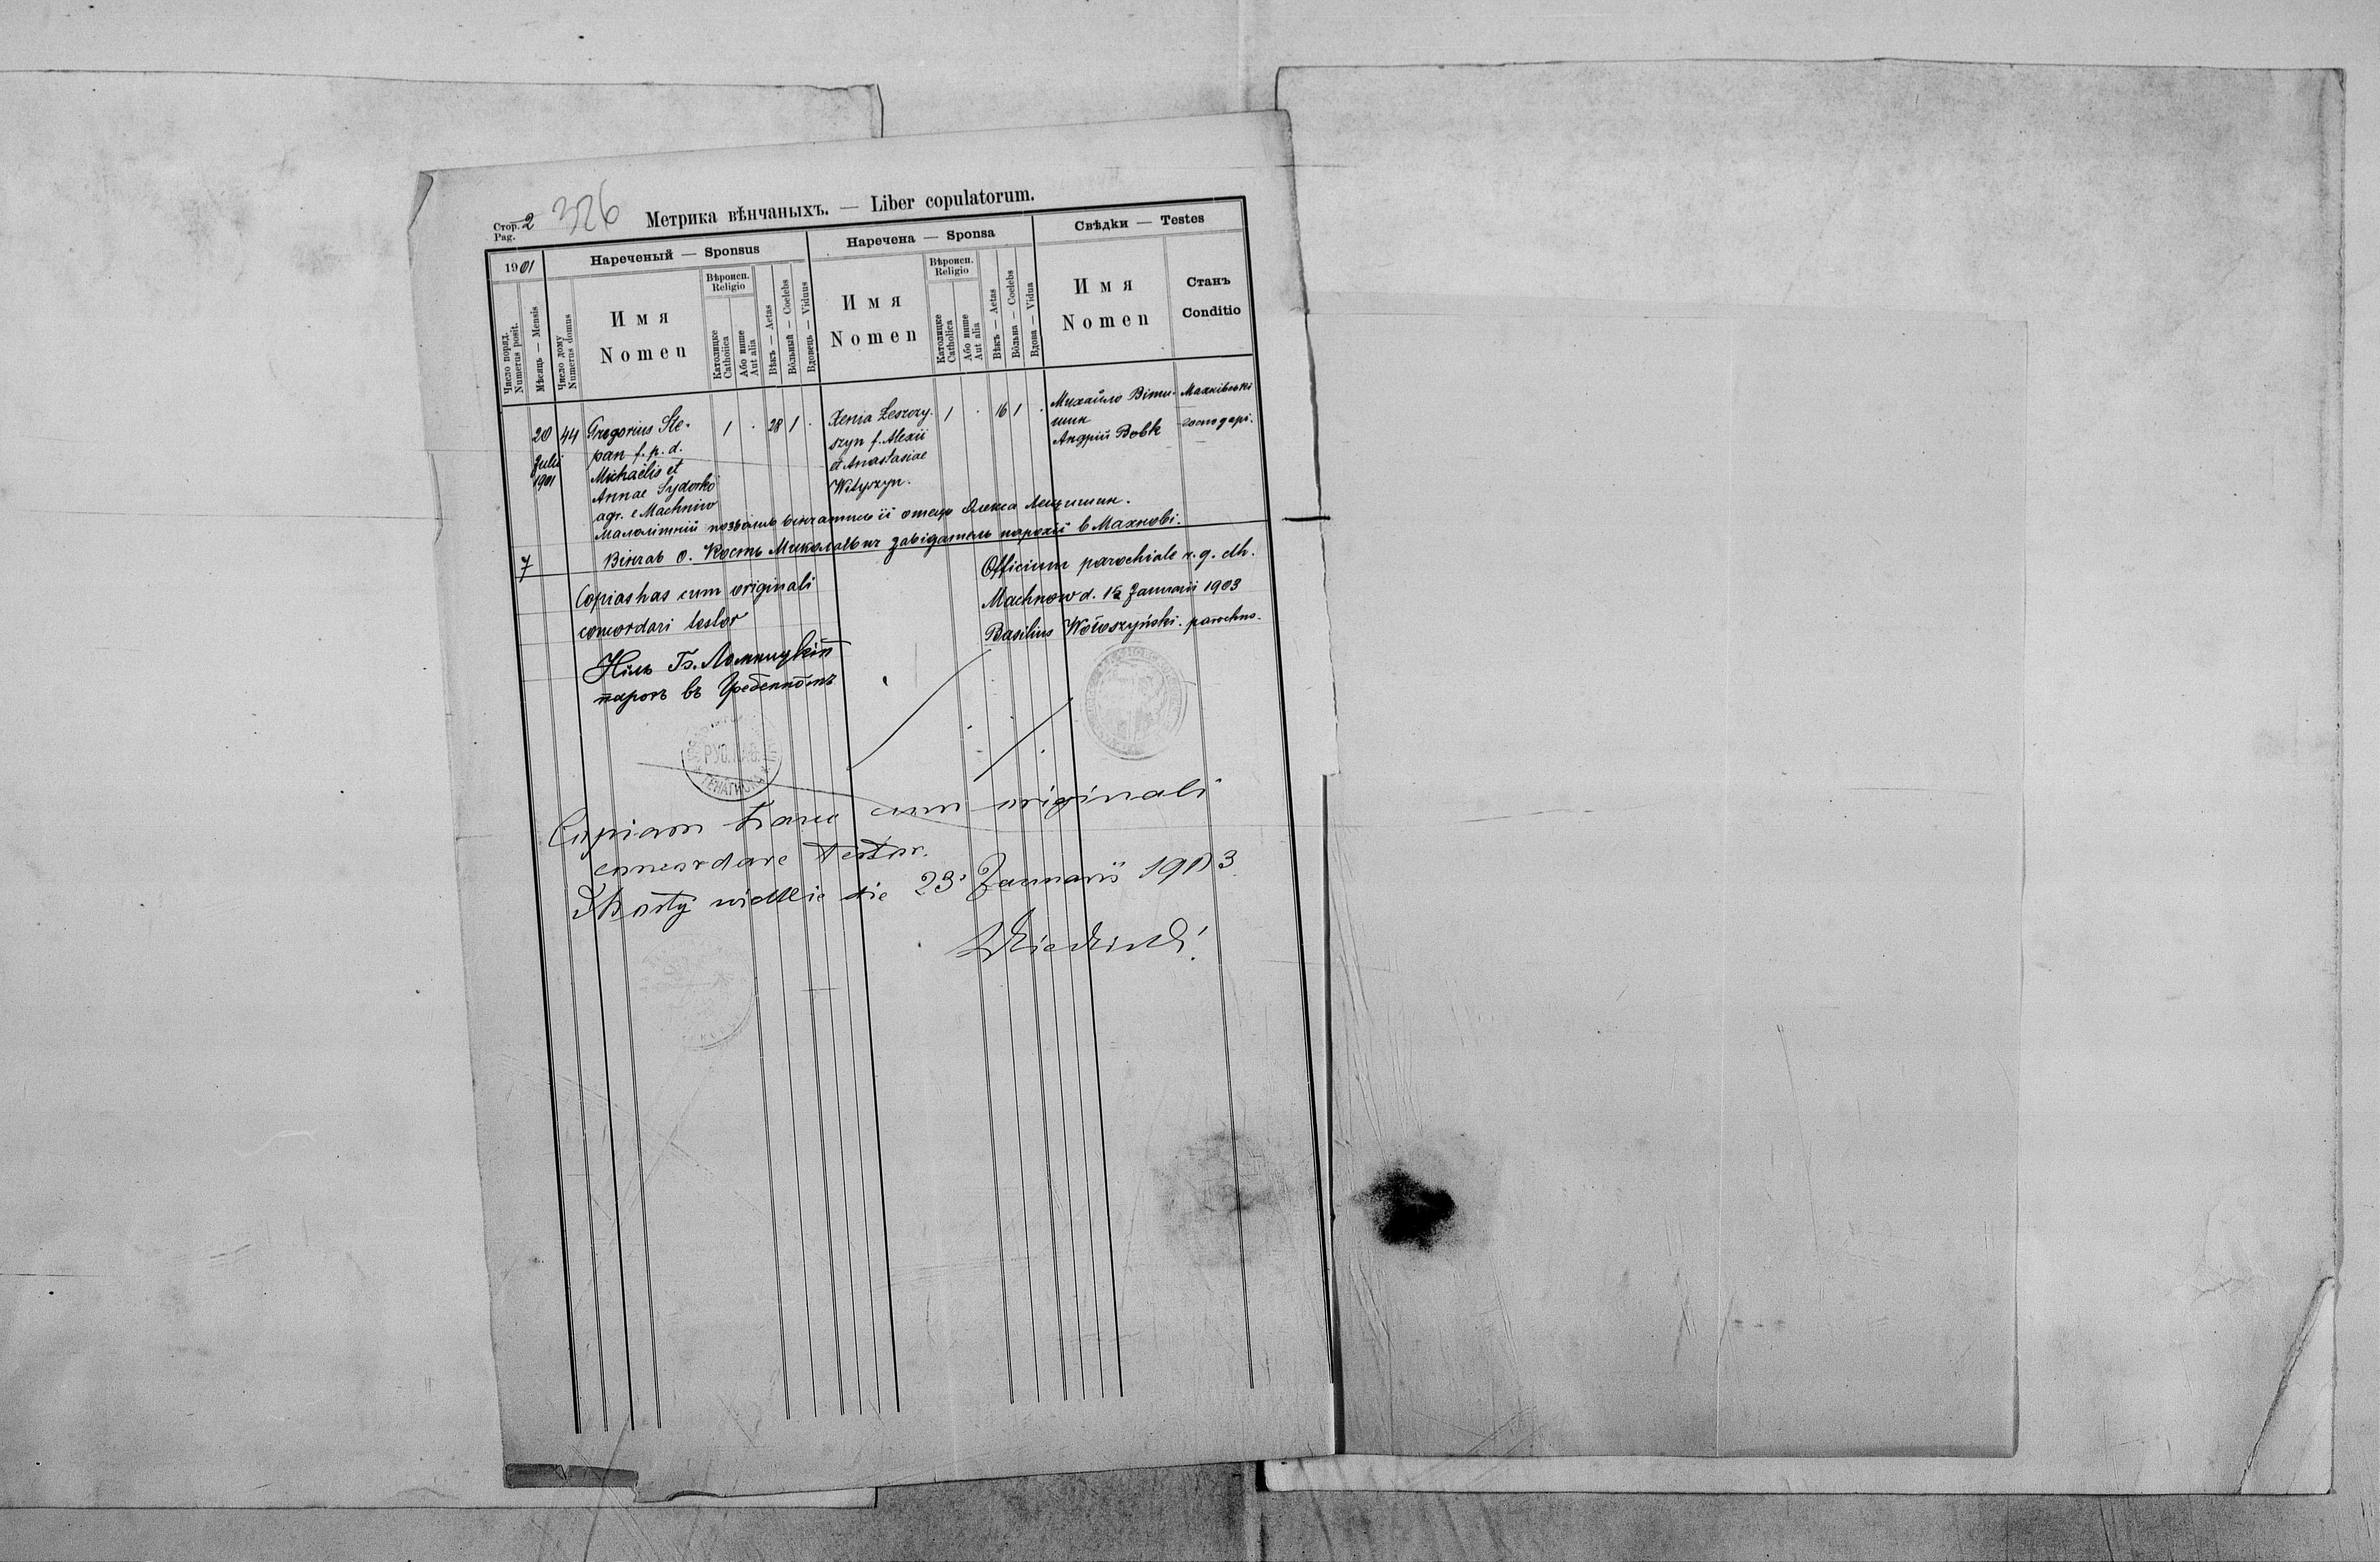 Стор. 2 326 Метрика вѣнчаныхъ. — Liber copulatorum.
Pag.
1901
Нареченый — Sponsus
Наречена — Sponsa
Свѣдки — Testes
Число поряд.
Numerus posit.
Мѣсяць — Mensis
Число дому
Numerus domus
Имя
Nomen
Вѣроисп.
Religio
Католицке
Catholica
Або инше
Aut alia
Вѣкъ — Aetas
Вôльный — Coelebs
Вдовець — Viduus
Имя
Nomen
Вѣроисп.
Religio
Католицке
Catholica
Або инше
Aut alia
Вѣкъ — Aetas
Вôльна — Coelebs
Вдова — Vidua
Имя
Nomen
Станъ
Conditio
20
Julii
1901
44
Gregorius Ste-
pan f. p. d.
Michaëlis et
Annae Sydorko
agr. e Machniw
1 . 28 1 .
Xenia Leszczy-
szyn f. Alexii
et Anastasiae
Wityszyn.
1 . 16 1 .
Михайло Віти-
шин
Андрій Вовк
Махнівські
господарі.
Малолітній позволив вінчатись її отець Олекса Лещишин.
7 Вінчав о. Кость Миколаєвич завідатель парохії в Махнові.
Copias has cum originali
concordari testor
Officium parochiale r. g. dh.
Machnow d. 12 Januarii 1903
Basilius Wołoszyński. parochus.
Ніль Гр. Ломницкій
парох въ Гребенномъ
РУС.
Copiam hanc cum originali
concordare testor.
die 23 Januarii 1903